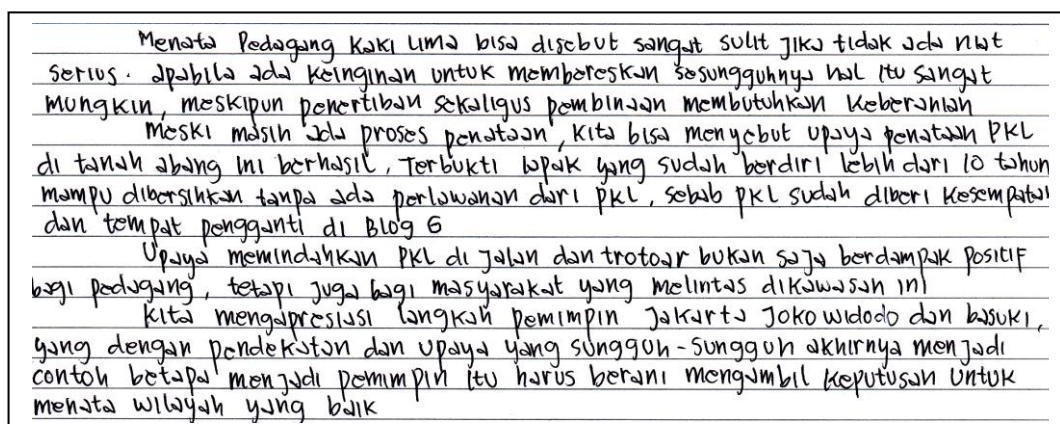 Menata Pedagang kaki Lima bisa disebut sangat sulit jika tidak ada niat
serius. apabila ada keinginan untuk membereskan sesungguhnya hal itu sangat
mungkin, meskipun penertiban sekaligus pembinaan membutuhkan keberanian
Meski masih ada proses penataan, kita bisa menyebut upaya penataan PKL
di tanah abang ini berhasil, Terbukti lapak yang sudah berdiri lebih dari 10 tahun
mampu dibersihkan tanpa ada perlawanan dari PKL, sebab PKL sudah diberi kesempatan
dan tempat pengganti di Blog G
Upaya memindahkan PKL di jalan dan trotoar bukan saja berdampak positif
bagi pedagang, tetapi juga bagi masyarakat yang melintas dikawasan ini
kita mengapresiasi langkah pemimpin Jakarta Joko widodo dan basuki,
yang dengan pendekatan dan upaya yang sungguh-sungguh akhirnya menjadi
contoh betapa menjadi pemimpin itu harus berani mengambil keputusan untuk
menata wilayah yang baik